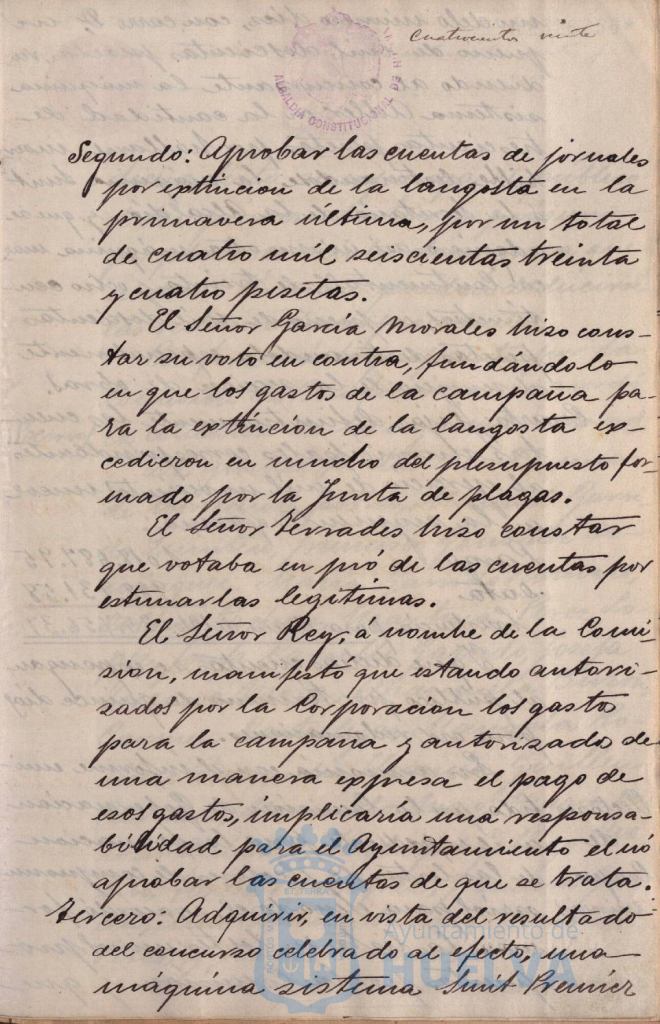 Cuatrocientos veinte
ALCALDIA CONSTITUCIONAL DE
Segundo: Aprobar las cuentas de jornales
por extincion de la langosta en la
primavera última, por un total
de cuatro mil seiscientas treinta
y cuatro pesetas.
El Señor García Morales hizo cons-
tar su voto en contra, fundándolo
en que los gastos de la campaña pa-
ra la extincion de la langosta ex-
cedieron en mucho del presupuesto for-
mado por la Junta de plagas.
El Señor Terrades hizo constar
que votaba en pró de las cuentas por
estimarlas legítimas.
El Señor Rey, á nombre de la Comi-
sión, manifestó que estando autori-
zados por la Corporacion los gastos
para la campaña y autorizado de
una manera expresa el pago de
esos gastos, implicaría una responsa-
bilidad para el Ayuntamiento el nó
aprobar las cuentas de que se trata.
Tercero: Adquirir, en vista del resultado
del concurso celebrado al efecto, una
máquina sistema Smit Premier
Ayuntamiento de
HUELVA